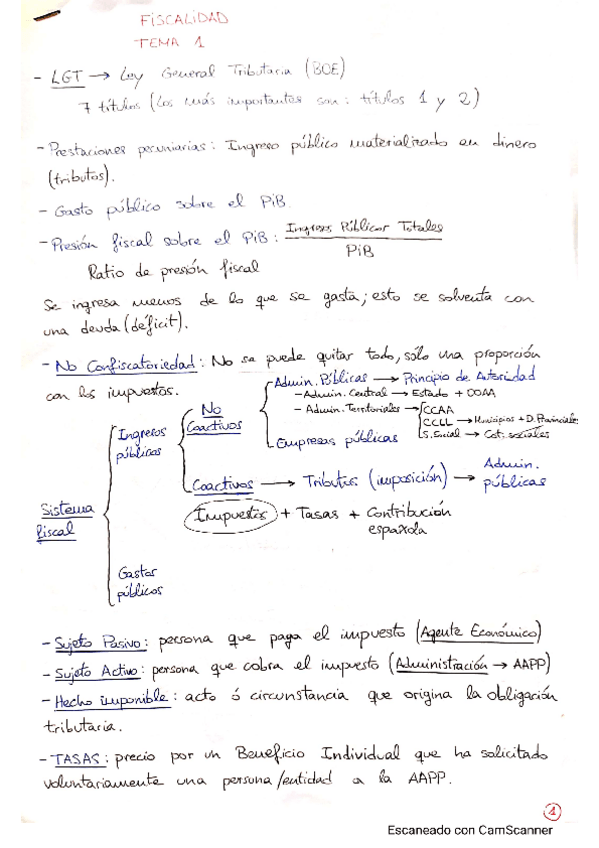 FISCALIDAD
TEMA 1
- LGT → Ley General Tributaria (BOE)
7 títulos (Los más importantes son: títulos 1 y 2)
- Prestaciones pecuniarias: Ingreso público materializado en dinero
(tributos).
- Gasto público sobre el PiB.
- Presión fiscal sobre el PiB: Ingresos Públicos Totales
PiB
Ratio de presión fiscal
Se ingresa menos de lo que se gasta; esto se solventa con
una deuda (déficit).
- No Confiscatoriedad: No se puede quitar todo, sólo una proporción
con los impuestos.
Sistema
fiscal
Ingresos
públicos
No
Coactivos
- Admin. Públicas → Principio de Autoridad
- Admin. Central → Estado + OOAA
- Admin. Territoriales → CCAA
CCLL → Municipios + D. Provinciales
S. Social → Cot. sociales
- Empresas públicas
Coactivos → Tributos (imposición) → Admin.
públicas
Impuestos + Tasas + Contribución
española
Gastos
públicos
- Sujeto Pasivo: persona que paga el impuesto (Agente Económico)
- Sujeto Activo: persona que cobra el impuesto (Administración → AAPP)
- Hecho imponible: acto ó circunstancia que origina la obligación
tributaria.
- TASAS: precio por un Beneficio Individual que ha solicitado
voluntariamente una persona/entidad a la AAPP.
1
Escaneado con CamScanner